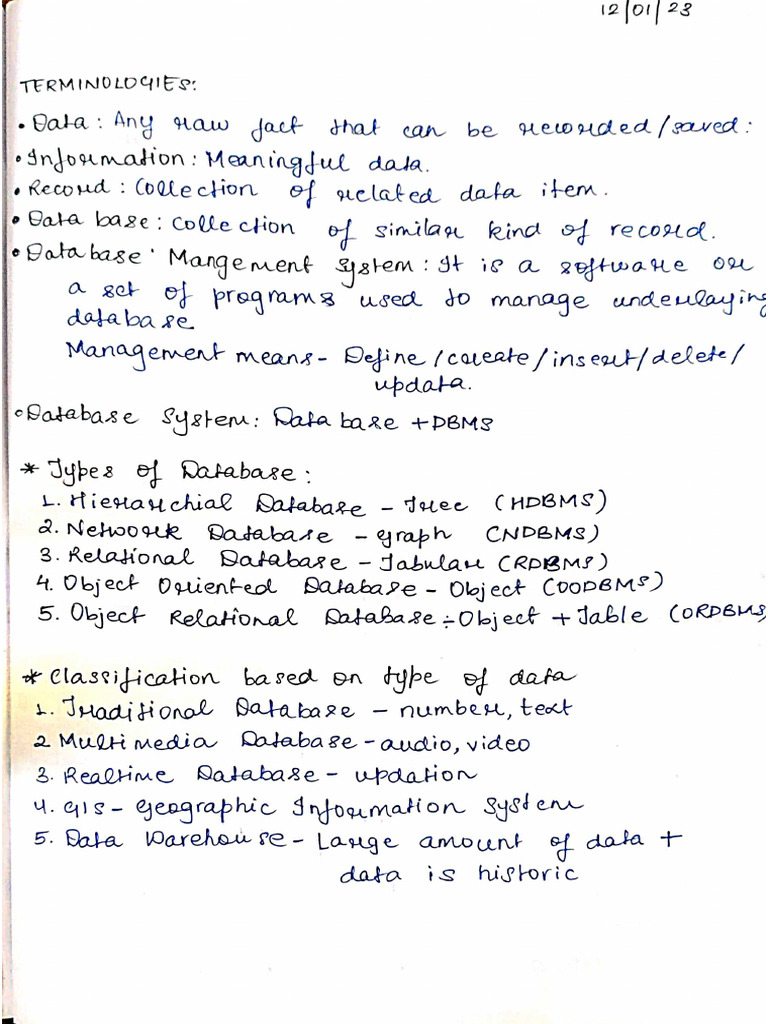 12/01/23
TERMINOLOGIES:
• Data : Any raw fact that can be recorded/saved:
• Information : Meaningful data.
• Record : Collection of related data item.
• Data base : Collection of similar kind of record.
• Database Mangement System : It is a software or
a set of programs used to manage underlaying
database
Management means - Define/create/insert/delete/
updata.
• Database System : Data base + DBMS
* Types of Database :
1. Hierarchial Database - Tree (HDBMS)
2. Network Database - graph (NDBMS)
3. Relational Database - Tabular (RDBMS)
4. Object Oriented Database - Object (OODBMS)
5. Object Relational Database ÷ Object + Table (ORDBMS)
* Classification based on type of data
1. Traditional Database - number, text
2 Multimedia Database - audio, video
3. Realtime Database - updation
4. GIS - Geographic Information System
5. Data Warehouse - Large amount of data +
data is historic